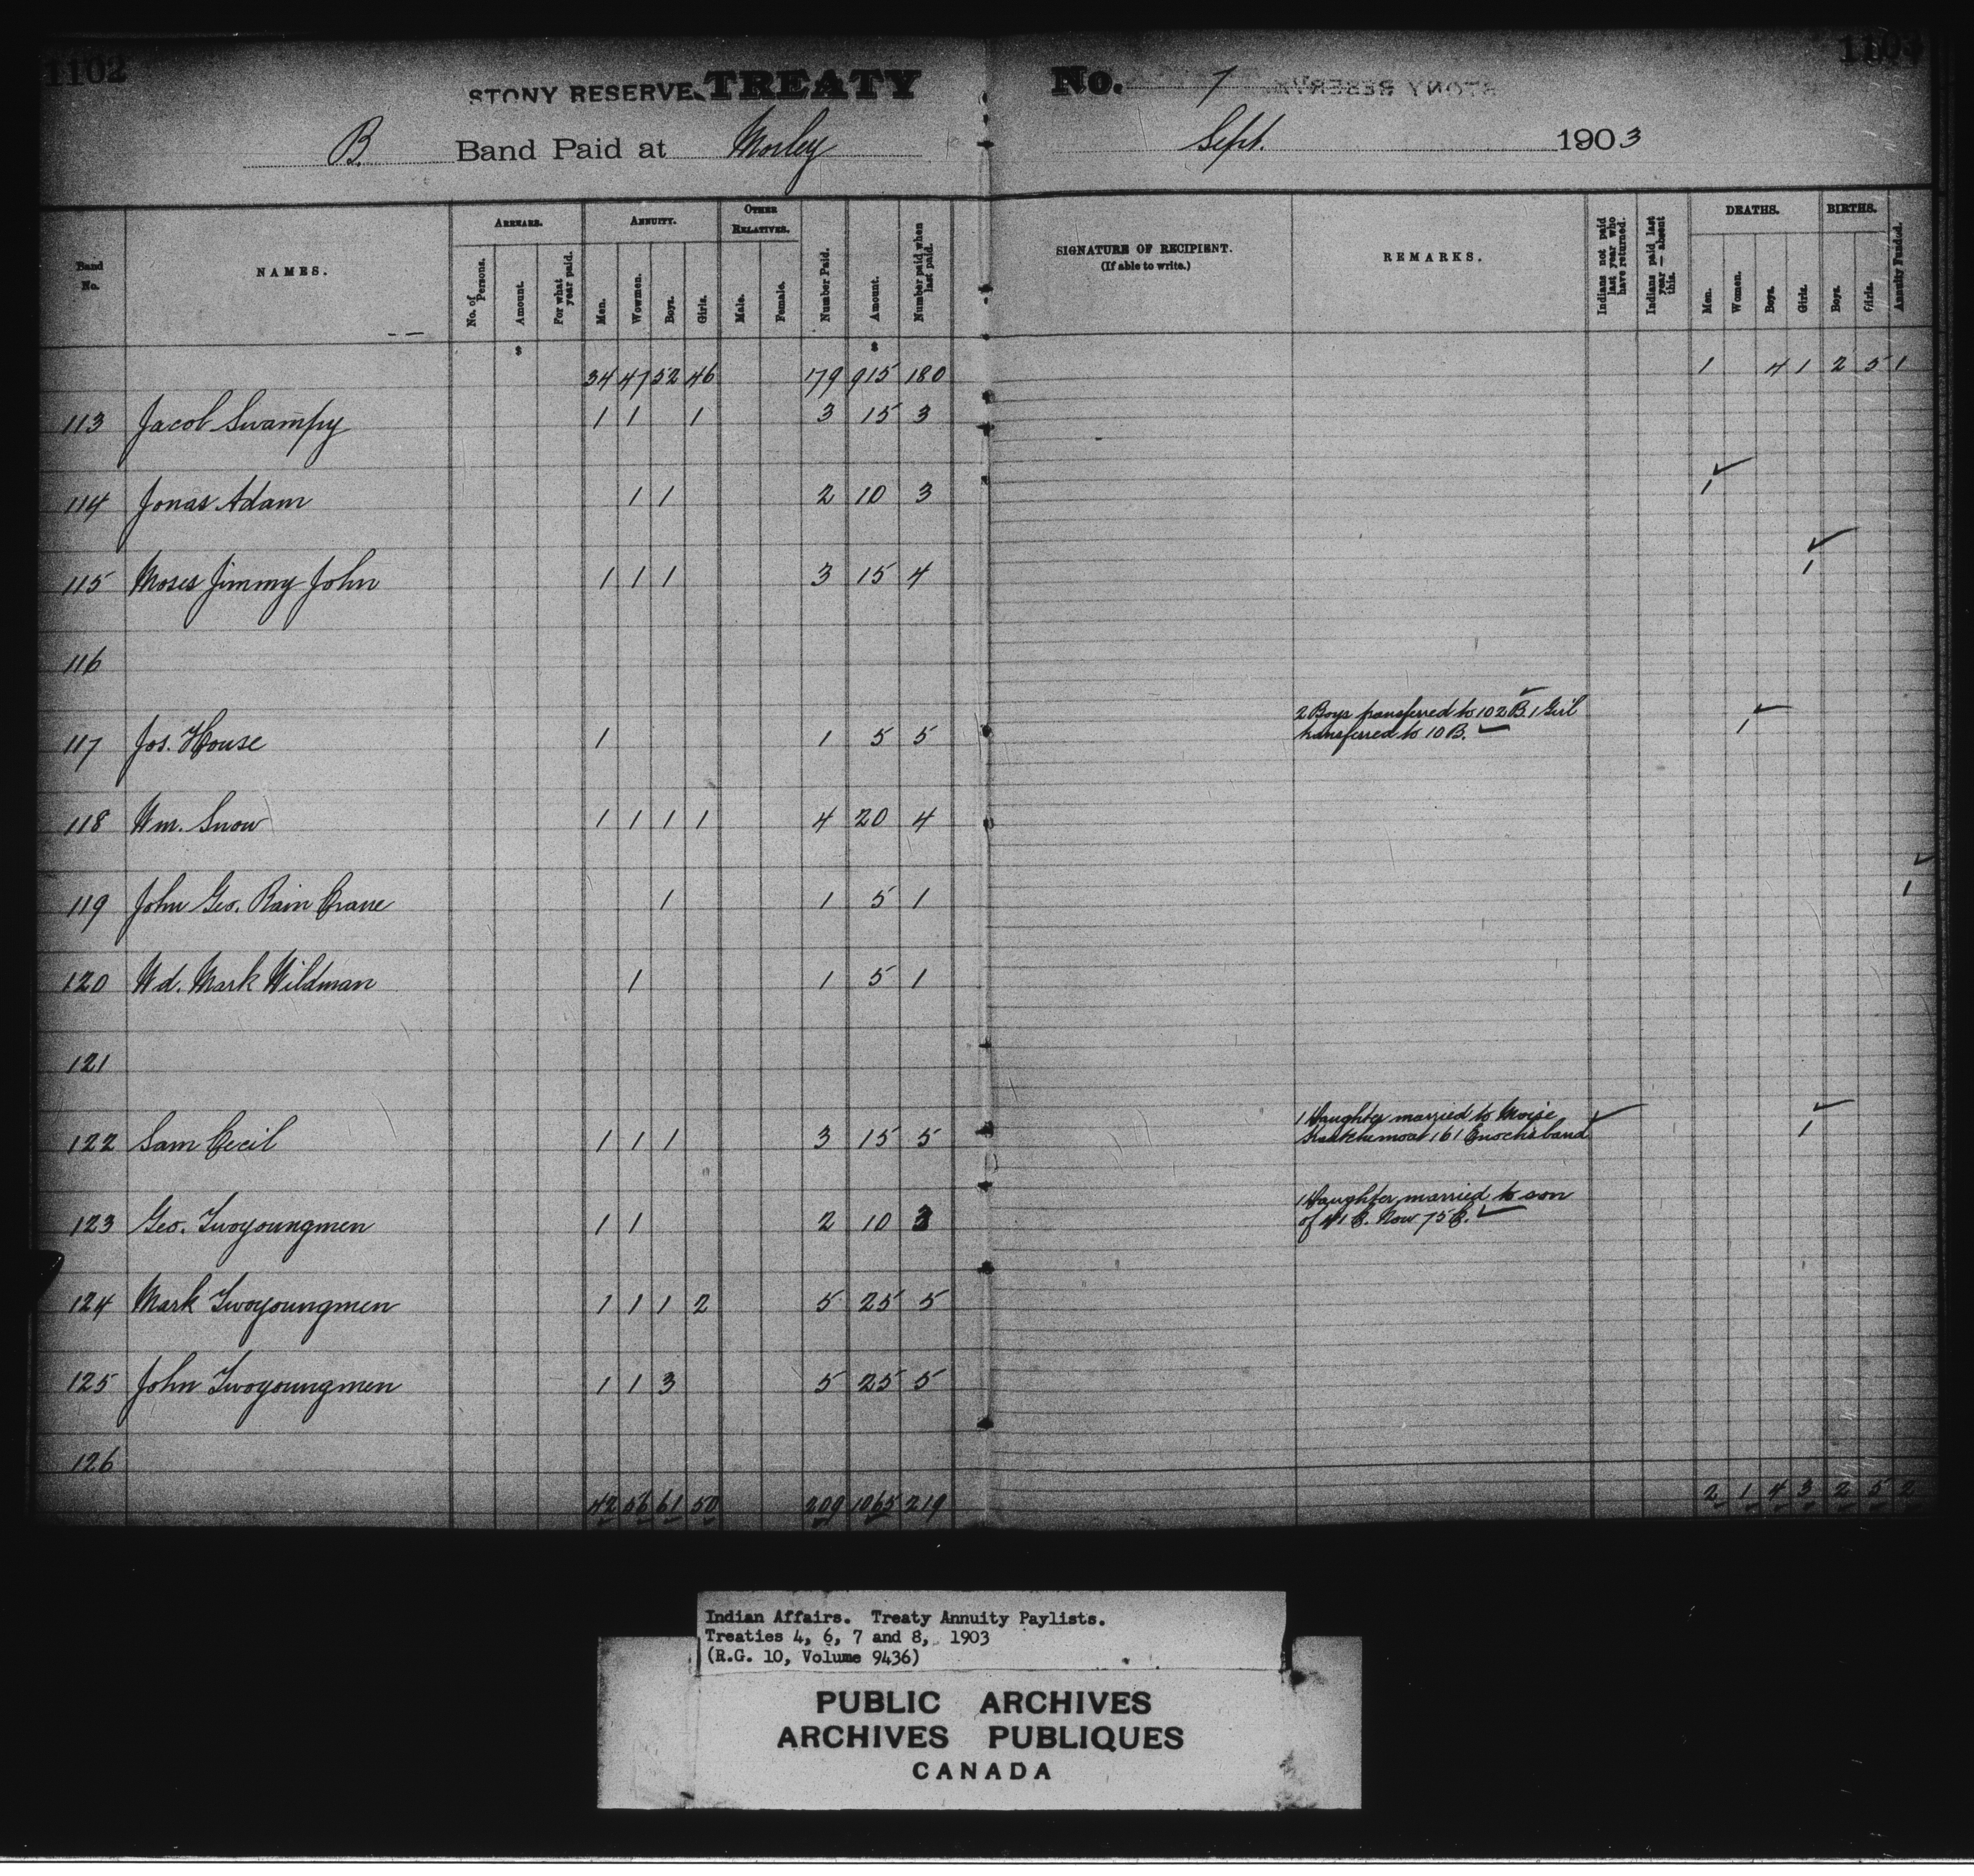 1102
STONY RESERVE. TREATY No. 7
B. Band Paid at Morley Sept. 1903
Band No. NAMES. ARREARS. No. of Persons. Amount. For what year paid. ANNUITY. Men. Wowmen. Boys. Girls. OTHER RELATIVES. Male. Female. Number Paid. Amount. Number paid when last paid. SIGNATURE OF RECIPIENT. (If able to write.) REMARKS. Indians not paid last year who have returned. Indians paid last year — absent this. DEATHS. Men. Women. Boys. Girls. BIRTHS. Boys. Girls. Annuity Funded.
$ $
34 47 52 46 179 915 180 1 4 1 2 5 1
113 Jacob Swampy 1 1 1 3 15 3
114 Jonas Adam 1 1 2 10 3 1
115 Moses Jimmy John 1 1 1 3 15 4 1
116
117 Jos. House 1 1 5 5 2 Boys transferred to 102 B. 1 Girl 1
transferred to 10 B.
118 Wm. Snow 1 1 1 1 4 20 4
119 John Geo. Rain Crane 1 1 5 1 1
120 Wd. Mark Wildman 1 1 5 1
121
122 Sam Cecil 1 1 1 3 15 5 1 Daughter married to Moise 1
161 Enoch's band
123 Geo. Twoyoungmen 1 1 2 10 3 1 Daughter married to son
of 41 C. Now 75 C.
124 Mark Twoyoungmen 1 1 1 2 5 25 5
125 John Twoyoungmen 1 1 3 5 25 5
126
42 56 61 50 209 1065 219 2 1 4 3 2 5 2
Indian Affairs. Treaty Annuity Paylists.
Treaties 4, 6, 7 and 8, 1903
(R.G. 10, Volume 9436)
PUBLIC ARCHIVES
ARCHIVES PUBLIQUES
CANADA